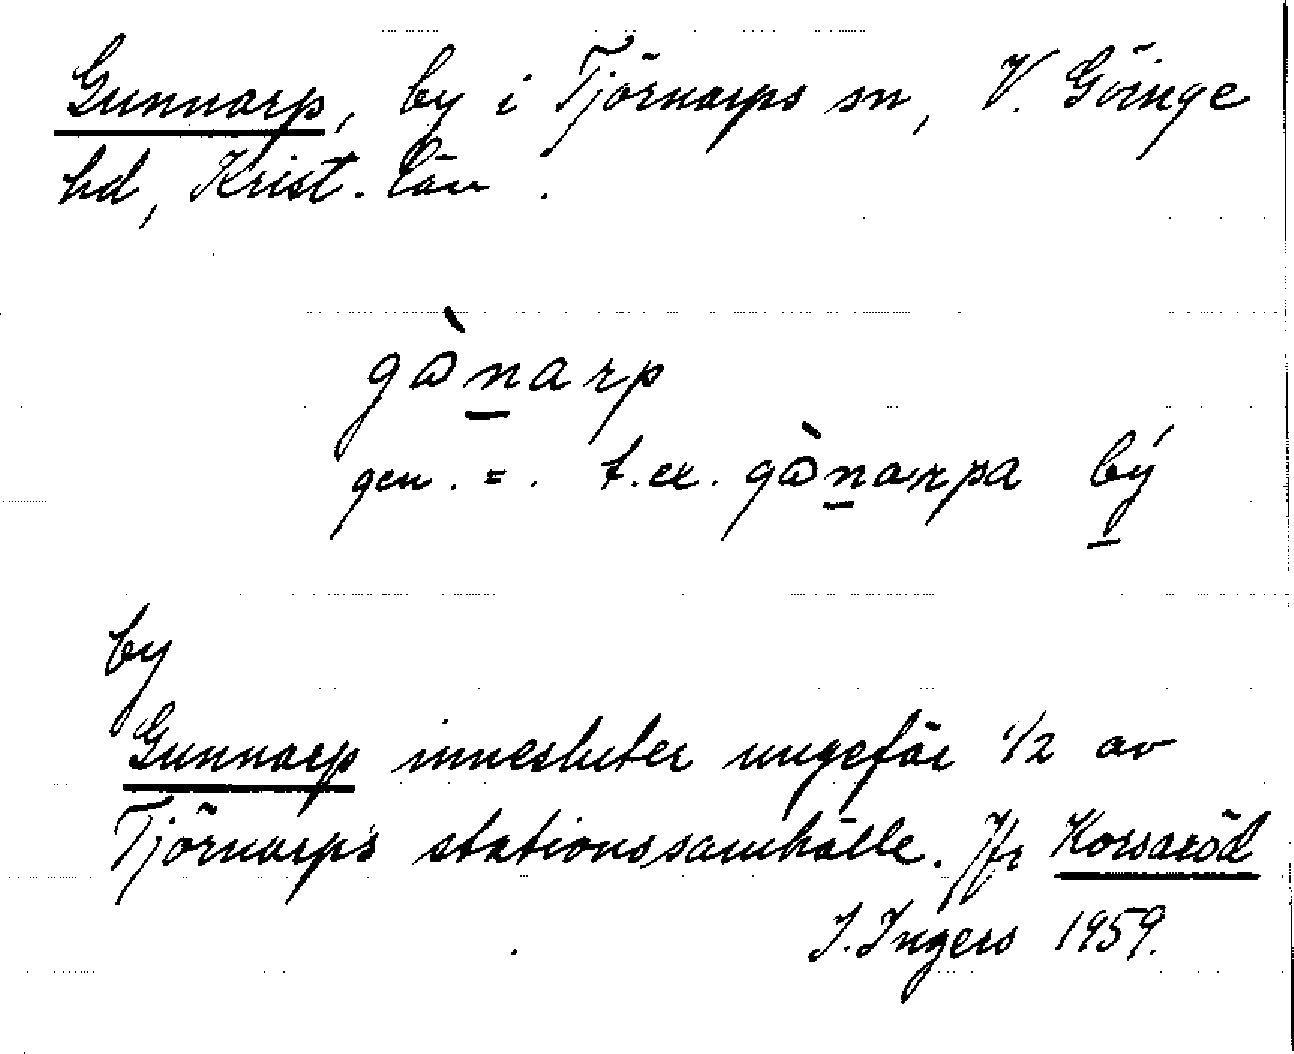 Gunnarp, by i Tjörnarps sn, V. Göinge
hd, Krist. län.
gɷ̀n̲arp
gen. = . t.ex. gɷ̀n̲arpa bý̲
by
Gunnarp innesluter ungefär 1/2 av
Tjörnarps stationssamhälle. Jfr Korsaröd
I. Ingers 1959.